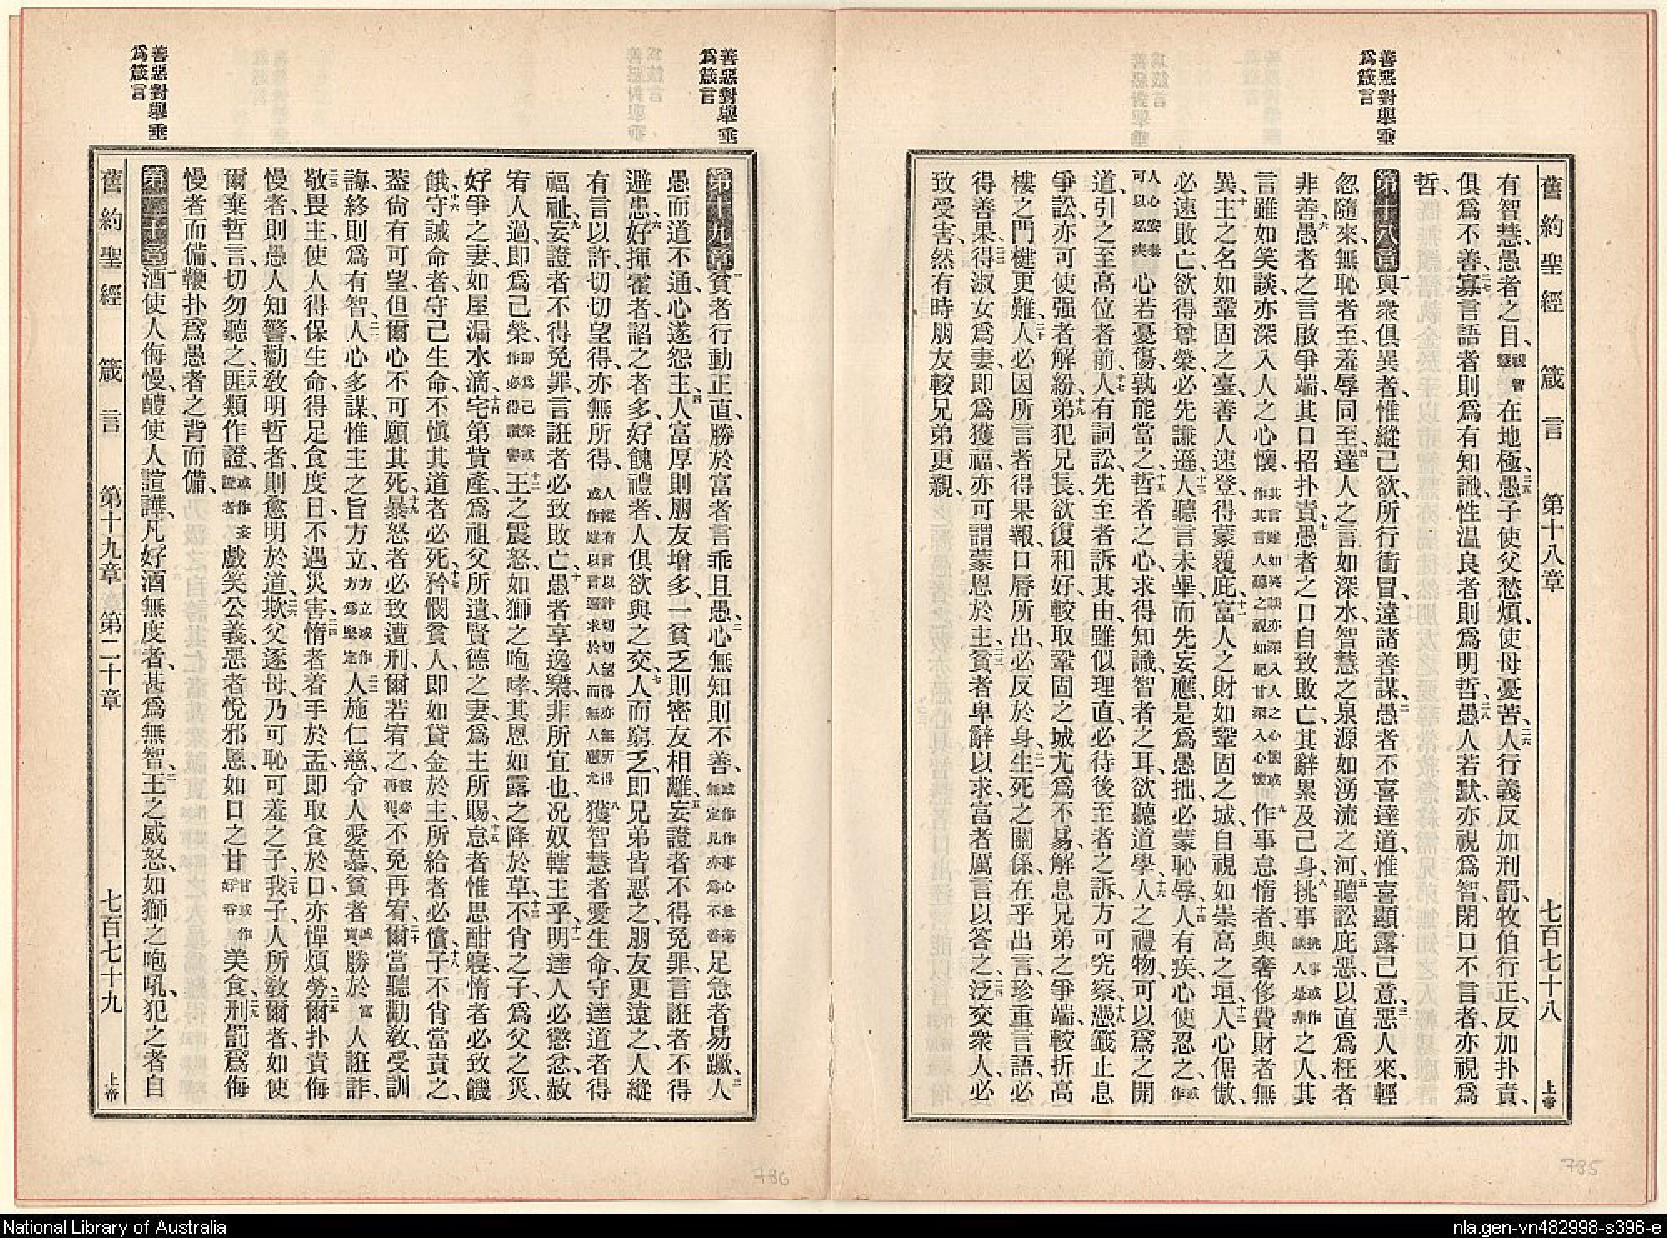 善惡對舉垂
爲箴言
舊約聖經 箴言 第十八章 七百七十八 上帝
有智慧、愚者之目、在地極、二五愚子使父愁煩、使母憂苦、二六人行義、反加刑罰、牧伯行正、反加扑責、
二七俱爲不善、寡言語者、則爲有知識、性温良者、則爲明哲、二八愚人若默、亦視爲智、閉口不言者、亦視爲
哲、
第十八章 一與衆俱異者、惟縱己欲、所行衝冒、遠諸善謀、二愚者不喜達道、惟喜顯露己意、三惡人來、輕
忽隨來、無恥者至、羞辱同至、四達人之言如深水、智慧之泉源、如湧流之河、五聽訟庇惡、以直爲枉者
非善、六愚者之言啟爭端、其口招扑責、七愚者之口、自致敗亡、其辭累及己身、八挑事 挑事或作讒人是非 之人、其
言雖如笑談、亦深入人之心懷、其言雖如笑談亦深入人之心懷或作其言人聽之視如肥甘深入心懷 九作事怠惰者、與奢侈費財者無
異、十主之名如鞏固之臺、善人速登、得蒙覆庇、十一富人之財、如鞏固之城、自視如崇高之垣、十二人心倨傲、
必速敗亡、欲得尊榮、必先謙遜、十三人聽言未畢、而先妄應、是爲愚拙、必蒙恥辱、十四人有疾、心使忍之、或作
人心安泰可以忍疾 心若憂傷、孰能當之、十五哲者之心、求得知識、智者之耳、欲聽道學、十六人之禮物、可以爲之開
道、引之至高位者前、十七人有詞訟、先至者訴其由、雖似理直、必待後至者之訴、方可究察、十八憑籤止息
爭訟、亦可使强者解紛、十九弟犯兄長、欲復和好、較取鞏固之城尤爲不易、解息兄弟之爭端、較折高
樓之門楗更難、二十人必因所言者得果報、口唇所出、必反於身、二一生死之關係、在乎出言、珍重言語、必
得善果、二二得淑女爲妻、即爲獲福、亦可謂蒙恩於主、二三貧者卑辭以求、富者厲言以答之、二四泛交衆人、必
致受害、然有時朋友較兄弟更親、
善惡對舉垂
爲箴言
善惡對舉垂
爲箴言
第十九章 一貧者行動正直、勝於富者言乖且愚、二心無知則不善、或作作事心急毫無定見亦爲不善 足急者易蹶、三人
愚而道不通、心遂怨主、四人富厚、則朋友增多、一貧乏則密友相離、五妄證者不得免罪、言誑者不得
避患、六好揮霍者、諂之者多、好餽禮者、人俱欲與之交、七人而窮乏、即兄弟皆惡之、朋友更遠之、人縱
有言以許、切切望得、亦無所得、人縱有言以許切切望得亦無所得或作雖以言還求於人而無人應允 八獲智慧者愛生命、守達道者得
福祉、九妄證者不得免罪、言誑者必致敗亡、十愚者享逸樂、非所宜也、况奴轄主乎、十一明達人必懲忿、赦
宥人過、即爲己榮、即爲己榮或作必得讚譽 十二王之震怒、如獅之咆哮、其恩如露之降於草、十三不肖之子、爲父之災、
好爭之妻、如屋漏水滴、十四宅第貲產、爲祖父所遺、賢德之妻、爲主所賜、十五怠者惟思酣寢、惰者必致饑
餓、十六守誡命者、守己生命、不慎其道者必死、十七矜憫貧人、即如貸金於主、所給者必償、十八子不肖當責之、
蓋尚有可望、但爾心不可願其死、十九暴怒者必致遭刑、爾若宥之、彼必再犯、不免再宥、二十爾當聽勸教、受訓
誨、終則爲有智、二一人心多謀、惟主之旨方立、方立或作方爲堅定 二二人施仁慈、令人愛慕、貧者 誠實 勝於 富 人誑詐、
二三敬畏主、使人得保生命、得足食度日、不遇災害、二四惰者着手於盂、即取食於口、亦憚煩勞、二五爾扑責侮
慢者、則愚人知警、勸教明哲者、則愈明於道、二六欺父逐母、乃可恥可羞之子、二七我子、人所教爾者、如使
爾棄哲言、切勿聽之、二八匪類作證、或作妄證者 戲笑公義、惡者悅邪慝、如口之甘 甘或作好吞 美食、二九刑罰爲侮
慢者而備、鞭扑爲愚者之背而備、
第二十章 一酒使人侮慢、醴使人諠譁、凡好酒無度者、甚爲無智、二王之威怒、如獅之咆吼、犯之者、自
舊約聖經 箴言 第十九章 第二十章 七百七十九 上帝
786
785
National Library of Australia
nla.gen-vn482998-s396-e